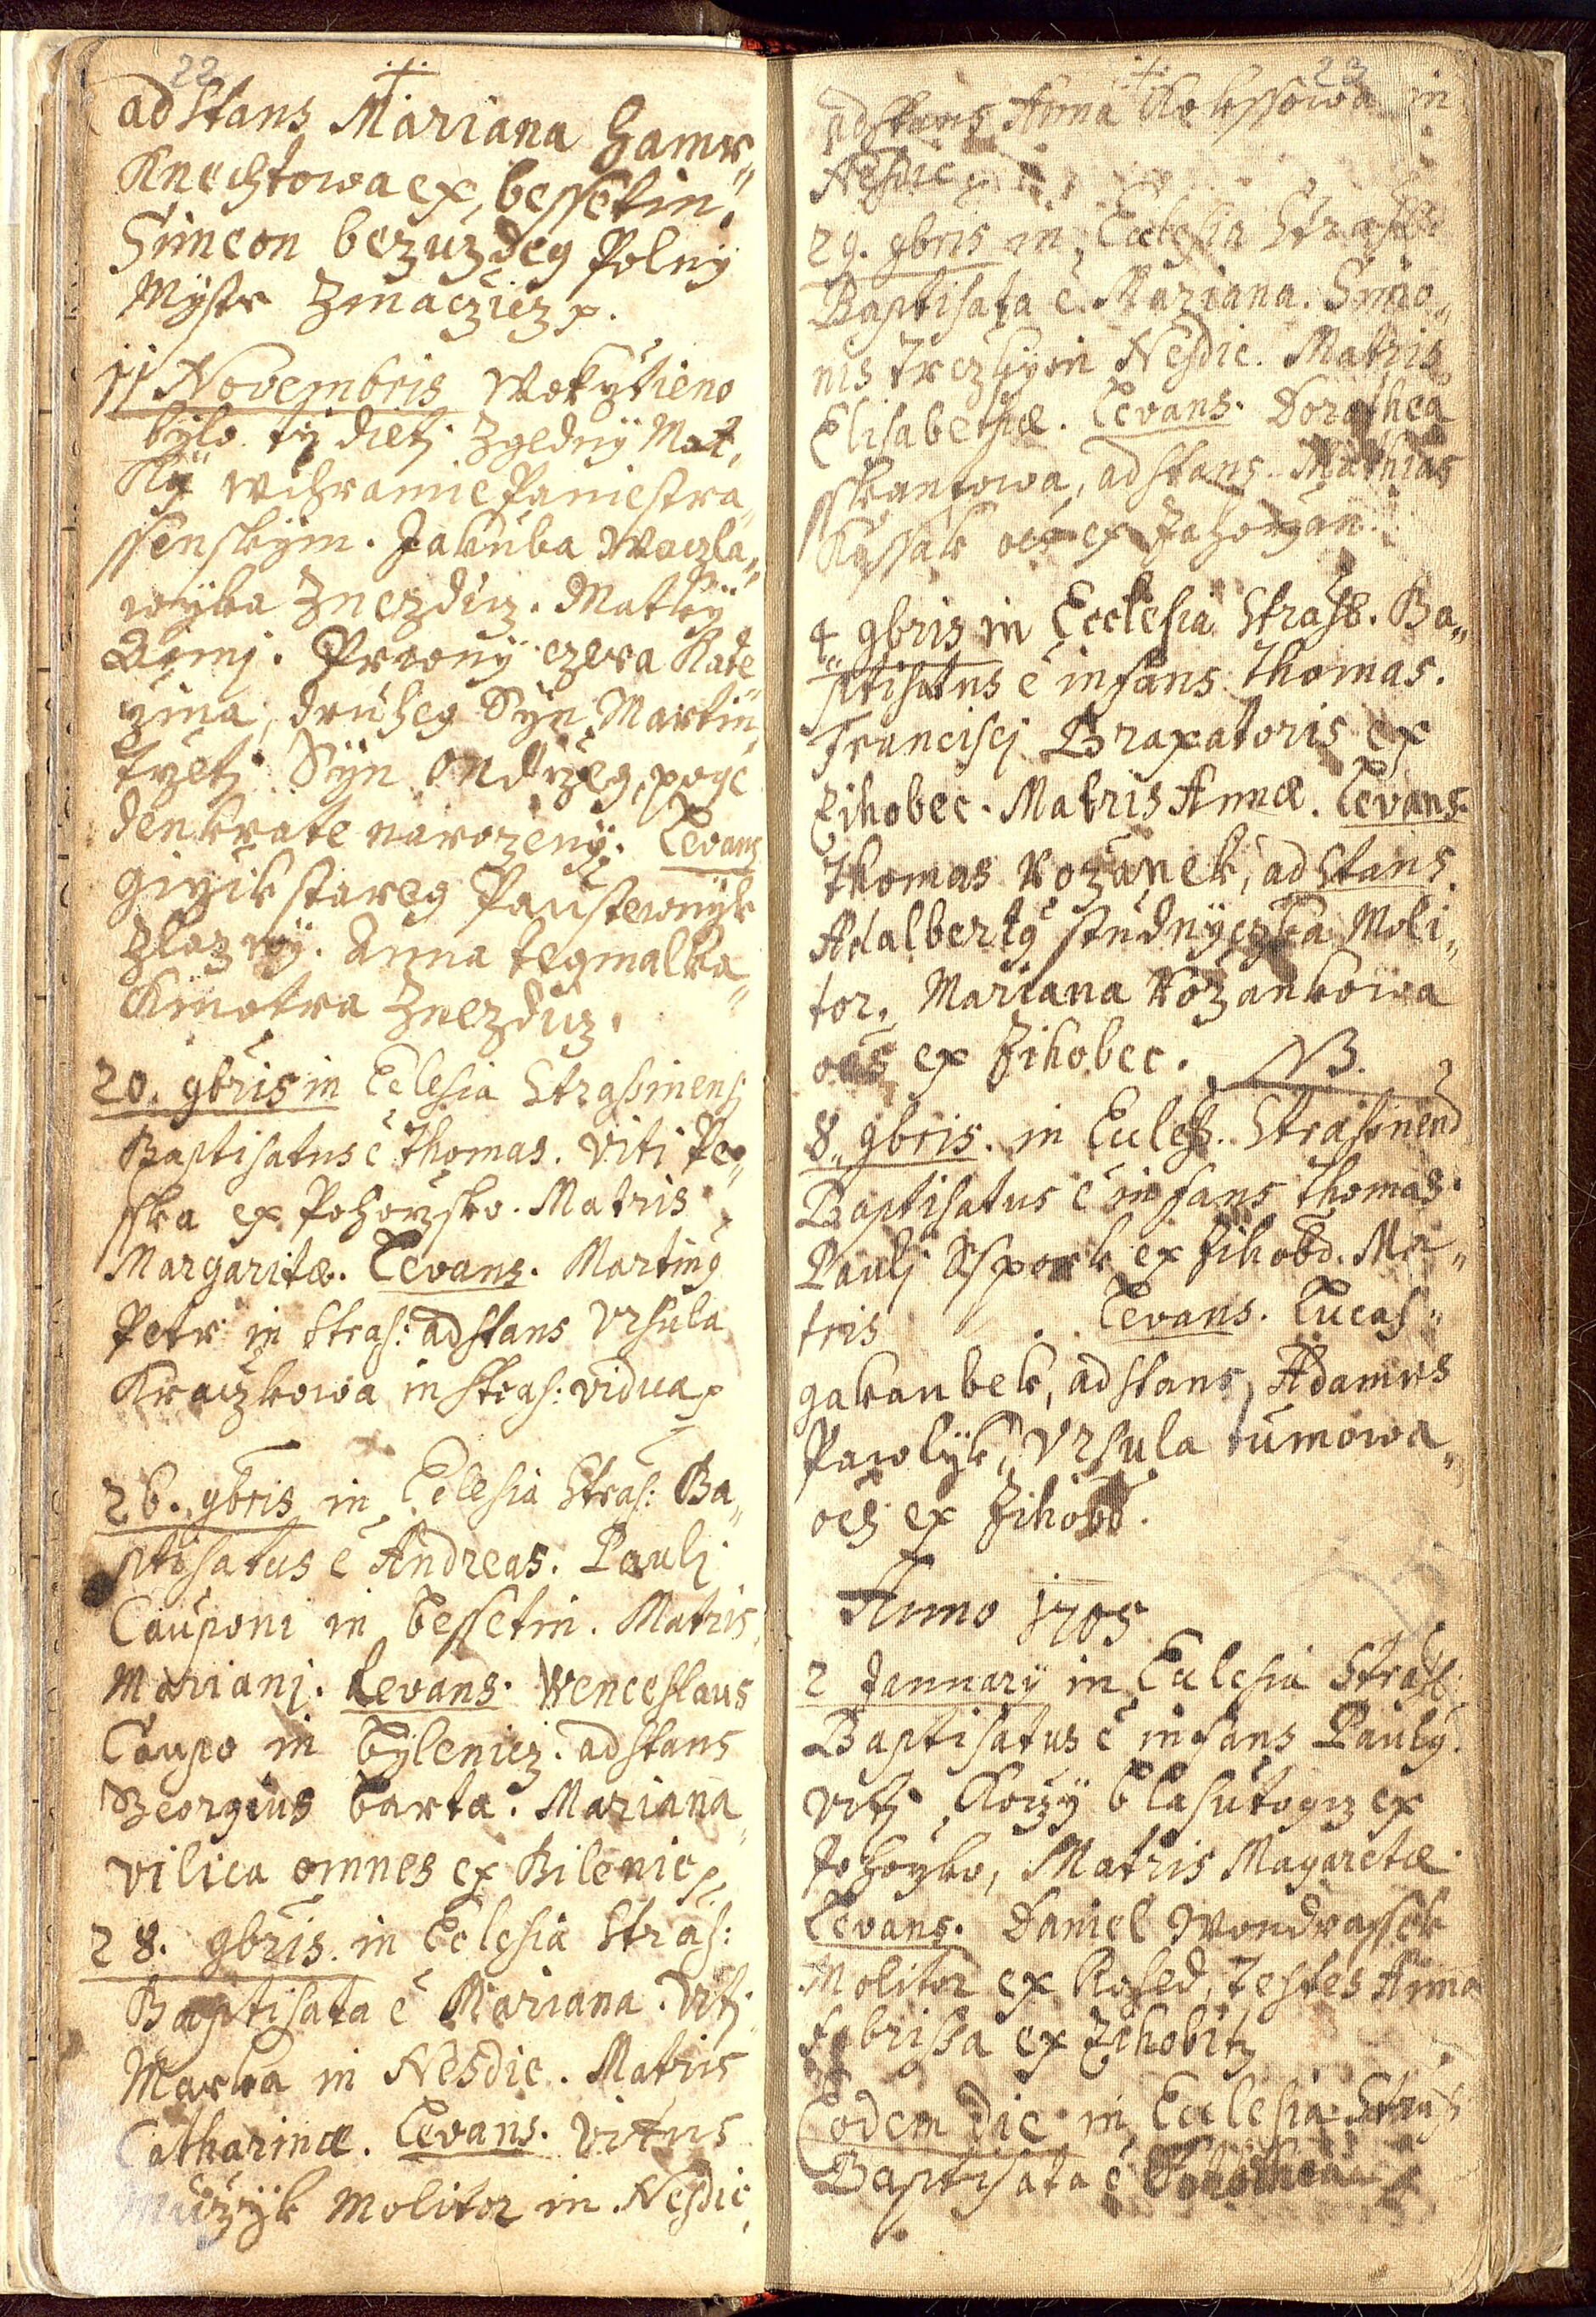 22
adstans Mariana Hamr„
Knechtowa ex bessetin.
Simeon bezuzdeg Polny
Mystr Zmacziczp.
11 Novembris Wokrztieno
bylo. ty dietj Zgedny Mat„
ky wchramie Paniestra„
ssenskym. Jakuba Waczla„
wyka Znezdicz. Matky
Anny. Prwny czera Kate„
rzina, druheg Syn Martin,
trzetj Syn Ondrzeg, poge
denkrate narozeny. Levans
Girzik stareg Paustewnyk
Zlazny. Anna tegmalka„
Kmotra Znezdicz.
20. 9bris in Eclesia Strassinensj
Baptisatus ē Thomas. Viti Pe„
sska ex Pohorsko. Matris
Margaritæ. Levans. Martinꝰ
Petr in Stras: adstans Ursula
Kraczkowa in stras: viduap
26. 9bris in Eclesia Stras: Ba„
ptisatus ē Andreas. Paulj
Cauponi in bessetin. Matris
Marianj. Levans. Wenceslaus
Caupo in bylenicz. adstans
Georgius barta. Mariana„
vilica omnes ex Bilenicp
28. 9bris. in Eclesia Stras:
Baptisata ē Mariana. Vitj
Marka in Nesdic. Matris
Catharinæ. Levans. Vitus
Molitor in Nesdic,
23
adstans Anna in
Nesdicp
29. 9bris in Eclesia Strass:
Baptisata ē Mariana. Simo„
nis Trczky in Nesdic. Matris
Elisabethæ. Levans. Dorothea
sskantowa, adstans. Mathias
Kussak oēs ex Zahorzan.
4„ 9bris in Ecclesia Strass. Ba„
ptisatus ē infans Thomas.
Franciscj Braxatoris ex
Zihobec. Matris Annæ. Levans
Thomas Rozanek, adstans.
Adalbertꝰ studnyczka Moli„
tor, Mariana Rozankowa
oēs ex Zihobec. NB.
8„ 9bris. in Eccles. Strassinens
Baptisatus ē infans Thomas.
Paulj Sspork ex Zihobd. Ma„
tris Levans. Lucas„
gakaubek, adstans, Adamus
Pawlyk, Ursula tumowa„
oēs ex Zihobd.
Anno 1705
2 January in Eclesia Strass:
Baptisatus ē infans Paulꝰ.
Vitj Kouzy blasutogcz ex
Pohorzko, Matris Magaretæ.
Levans. Daniel Wondrassek
Molitor ex Kosed, Testes Anna
Fabrissa ex Zihobitz
Eodem die in Ecclesia Strass
Baptisata ē Dorothea